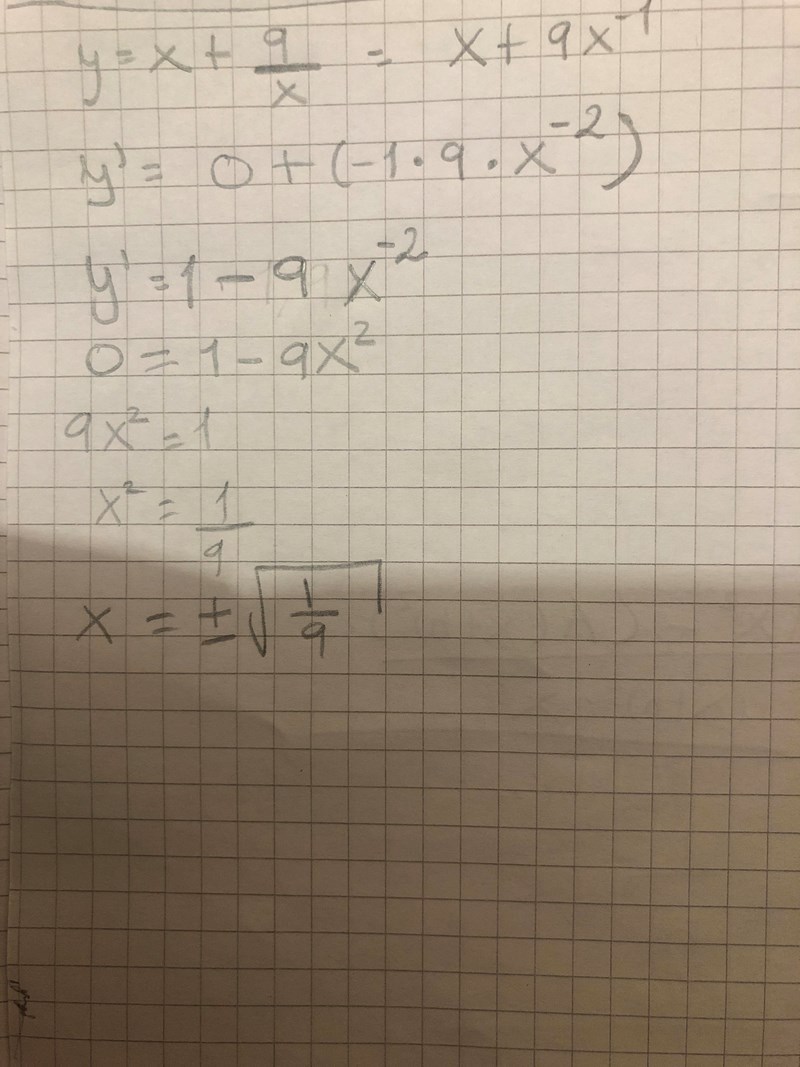 y = x + 9/x = x + 9x⁻¹
y' = 0 + (-1 · 9 · x⁻²)
y' = 1 - 9 x⁻²
0 = 1 - 9x²
9x² = 1
x² = 1/9
x = ± √(1/9)